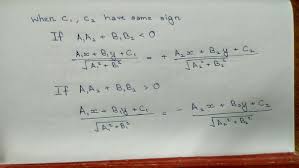 when C₁, C₂ have same sign
If A₁A₂ + B₁B₂ < 0
A₁x + B₁y + C₁ / √A₁² + B₁² = + A₂x + B₂y + C₂ / √A₂² + B₂²
If A₁A₂ + B₁B₂ > 0
A₁x + B₁y + C₁ / √A₁² + B₁² = - A₂x + B₂y + C₂ / √A₂² + B₂²